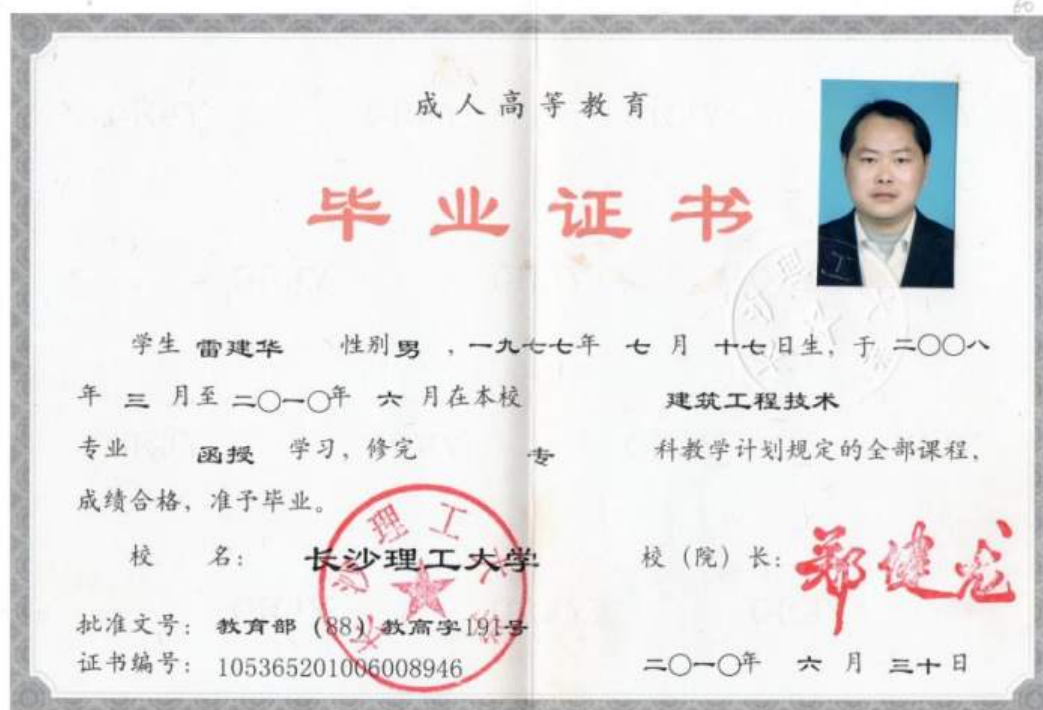 60
成人高等教育
毕业证书
学生 雷建华 性别 男 ，一九七七年 七 月 十七日生，于 二〇〇八
年 三 月至 二〇一〇年 六 月在本校 建筑工程技术
专业 函授 学习，修完 专 科教学计划规定的全部课程，
成绩合格，准予毕业。
校 名： 长沙理工大学 校（院）长： 郑健龙
批准文号： 教育部 (88) 教高字191号
证书编号： 105365201006008946 二〇一〇年 六 月 三十日
长沙理工大学